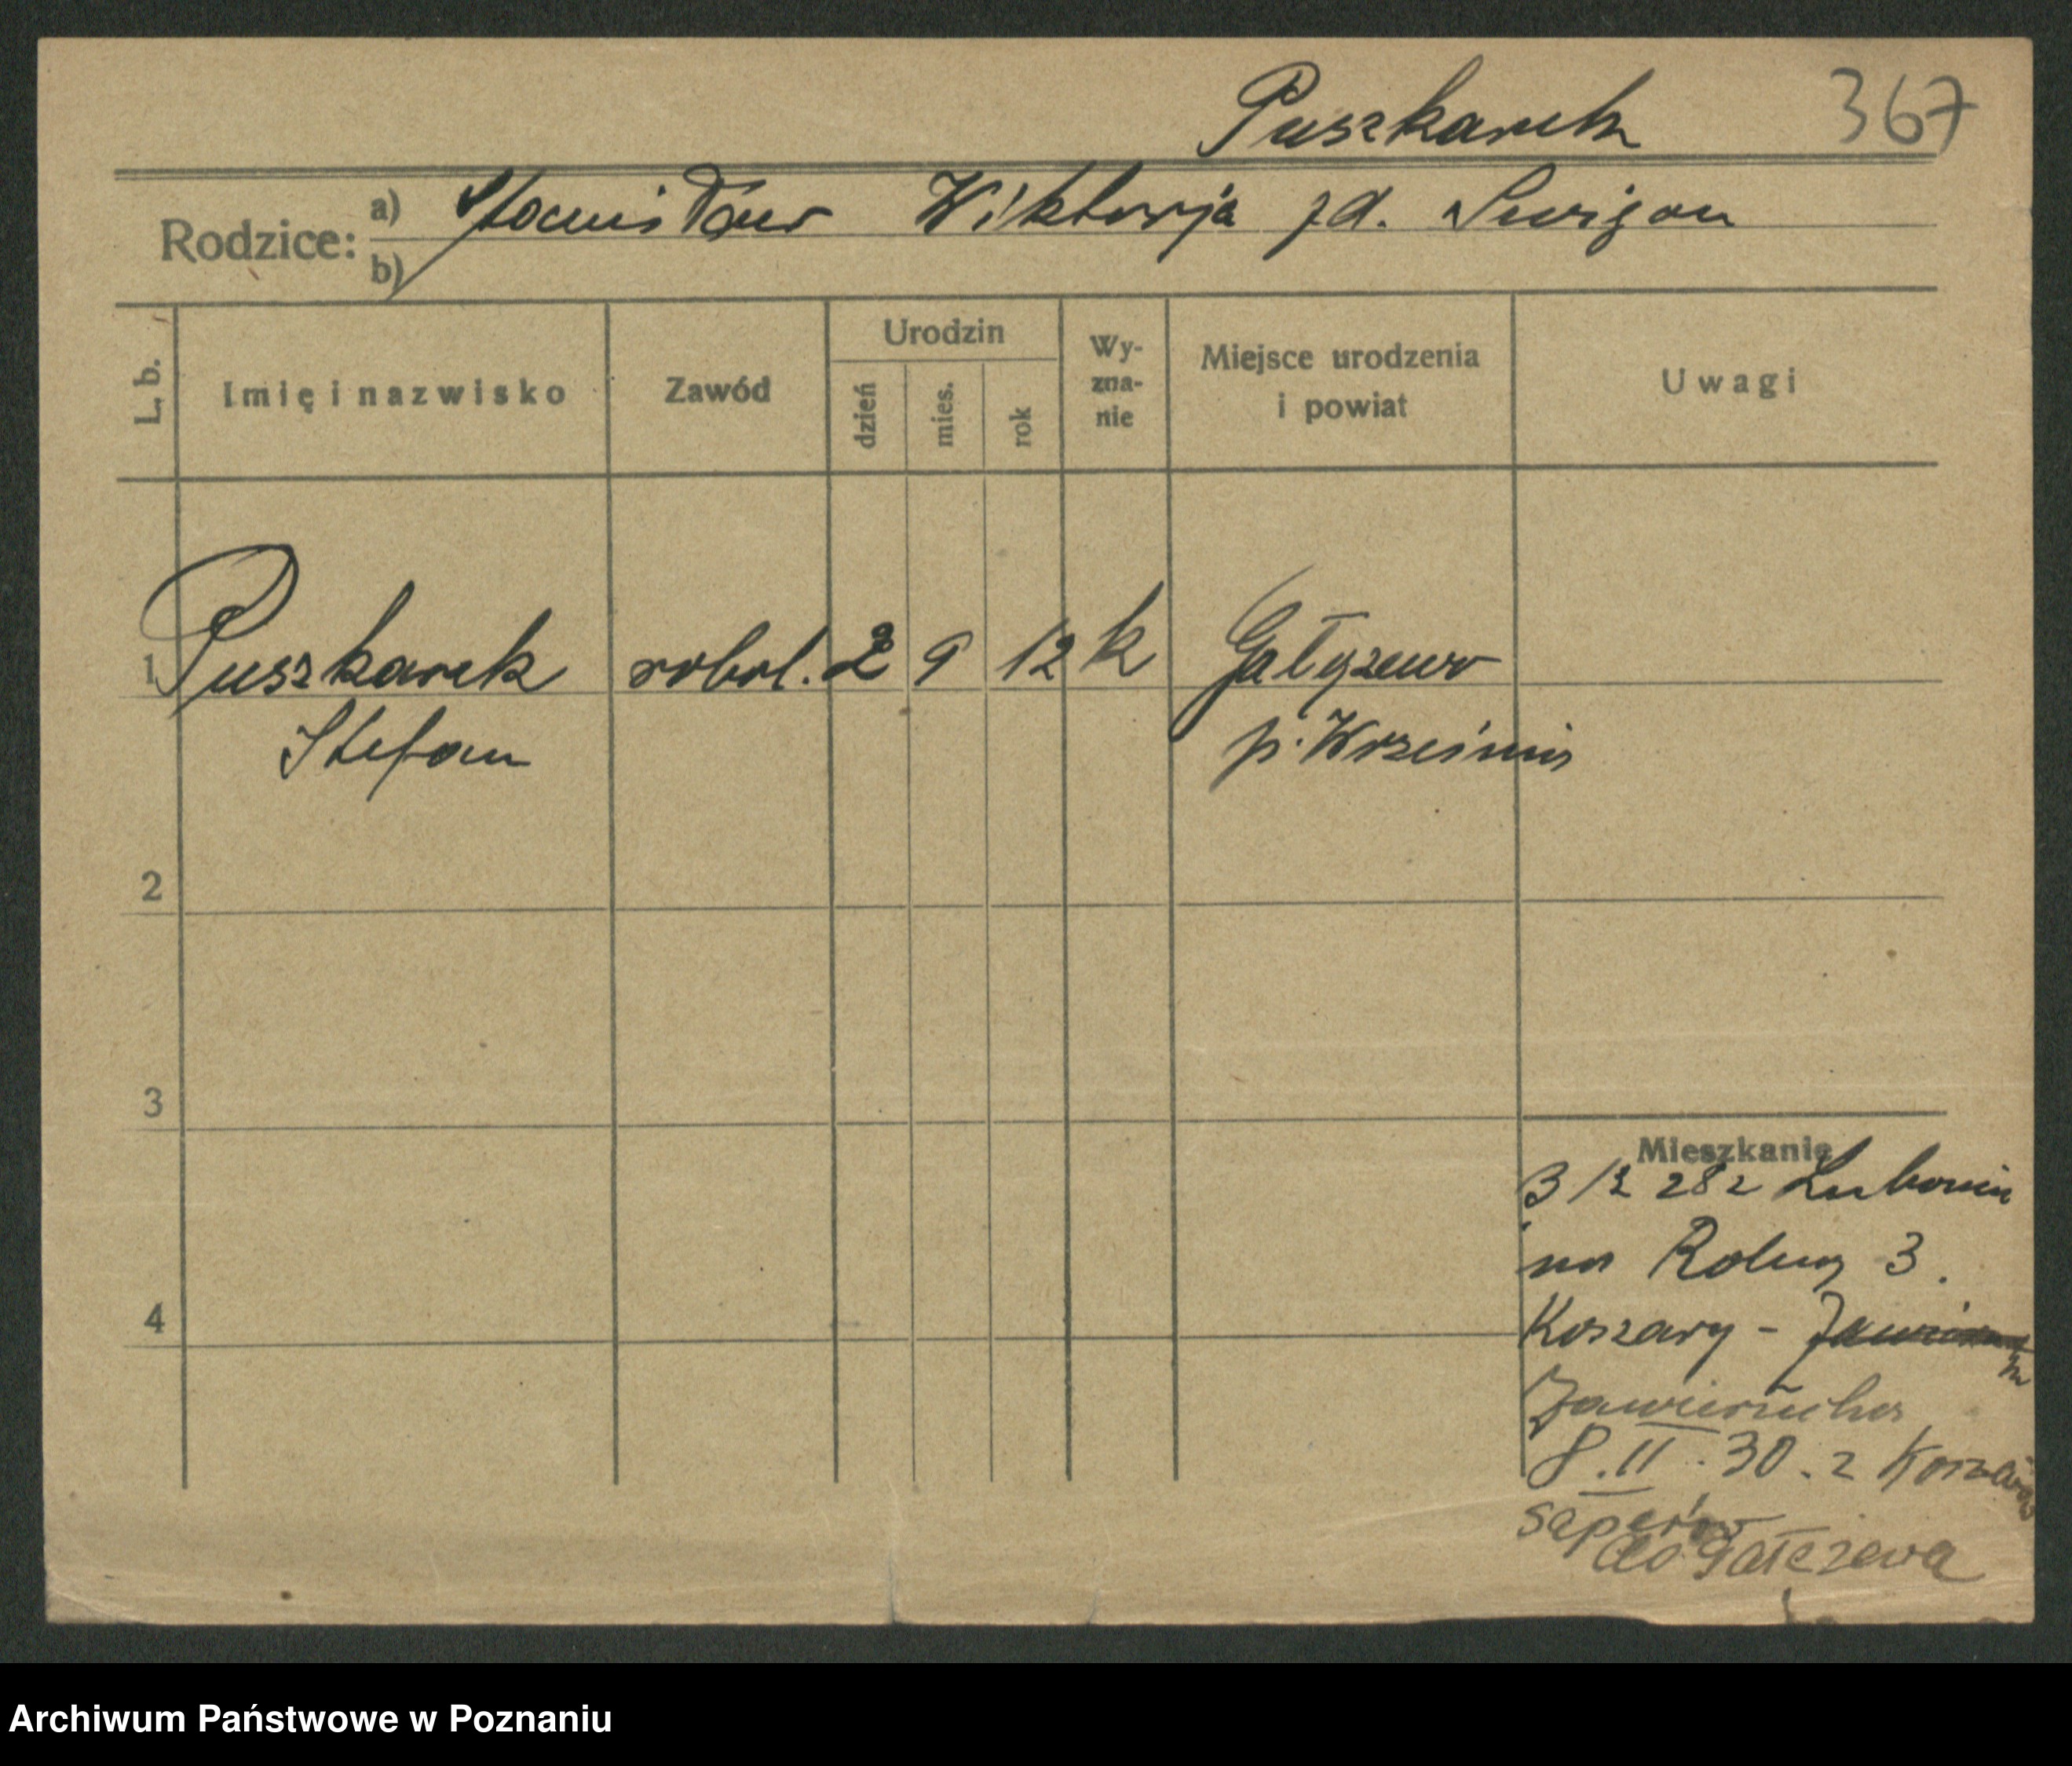 Puszkarek 367
Rodzice: a) Stanisław Wiktorja zd.
b)
L. b. Imię i nazwisko Zawód Urodzin dzień mies. rok Wy-zna-nie Miejsce urodzenia i powiat Uwagi
1 Puszkarek robot. 2 9 12 k Gałęzewo
Stefan p. Września
2
3
Mieszkanie
3/2 282 Lubonin
na Rolną 3.
4
Koszary -
Zawierucha
8.II.30. z Koszar
saperów
do Gałczewa
Archiwum Państwowe w Poznaniu